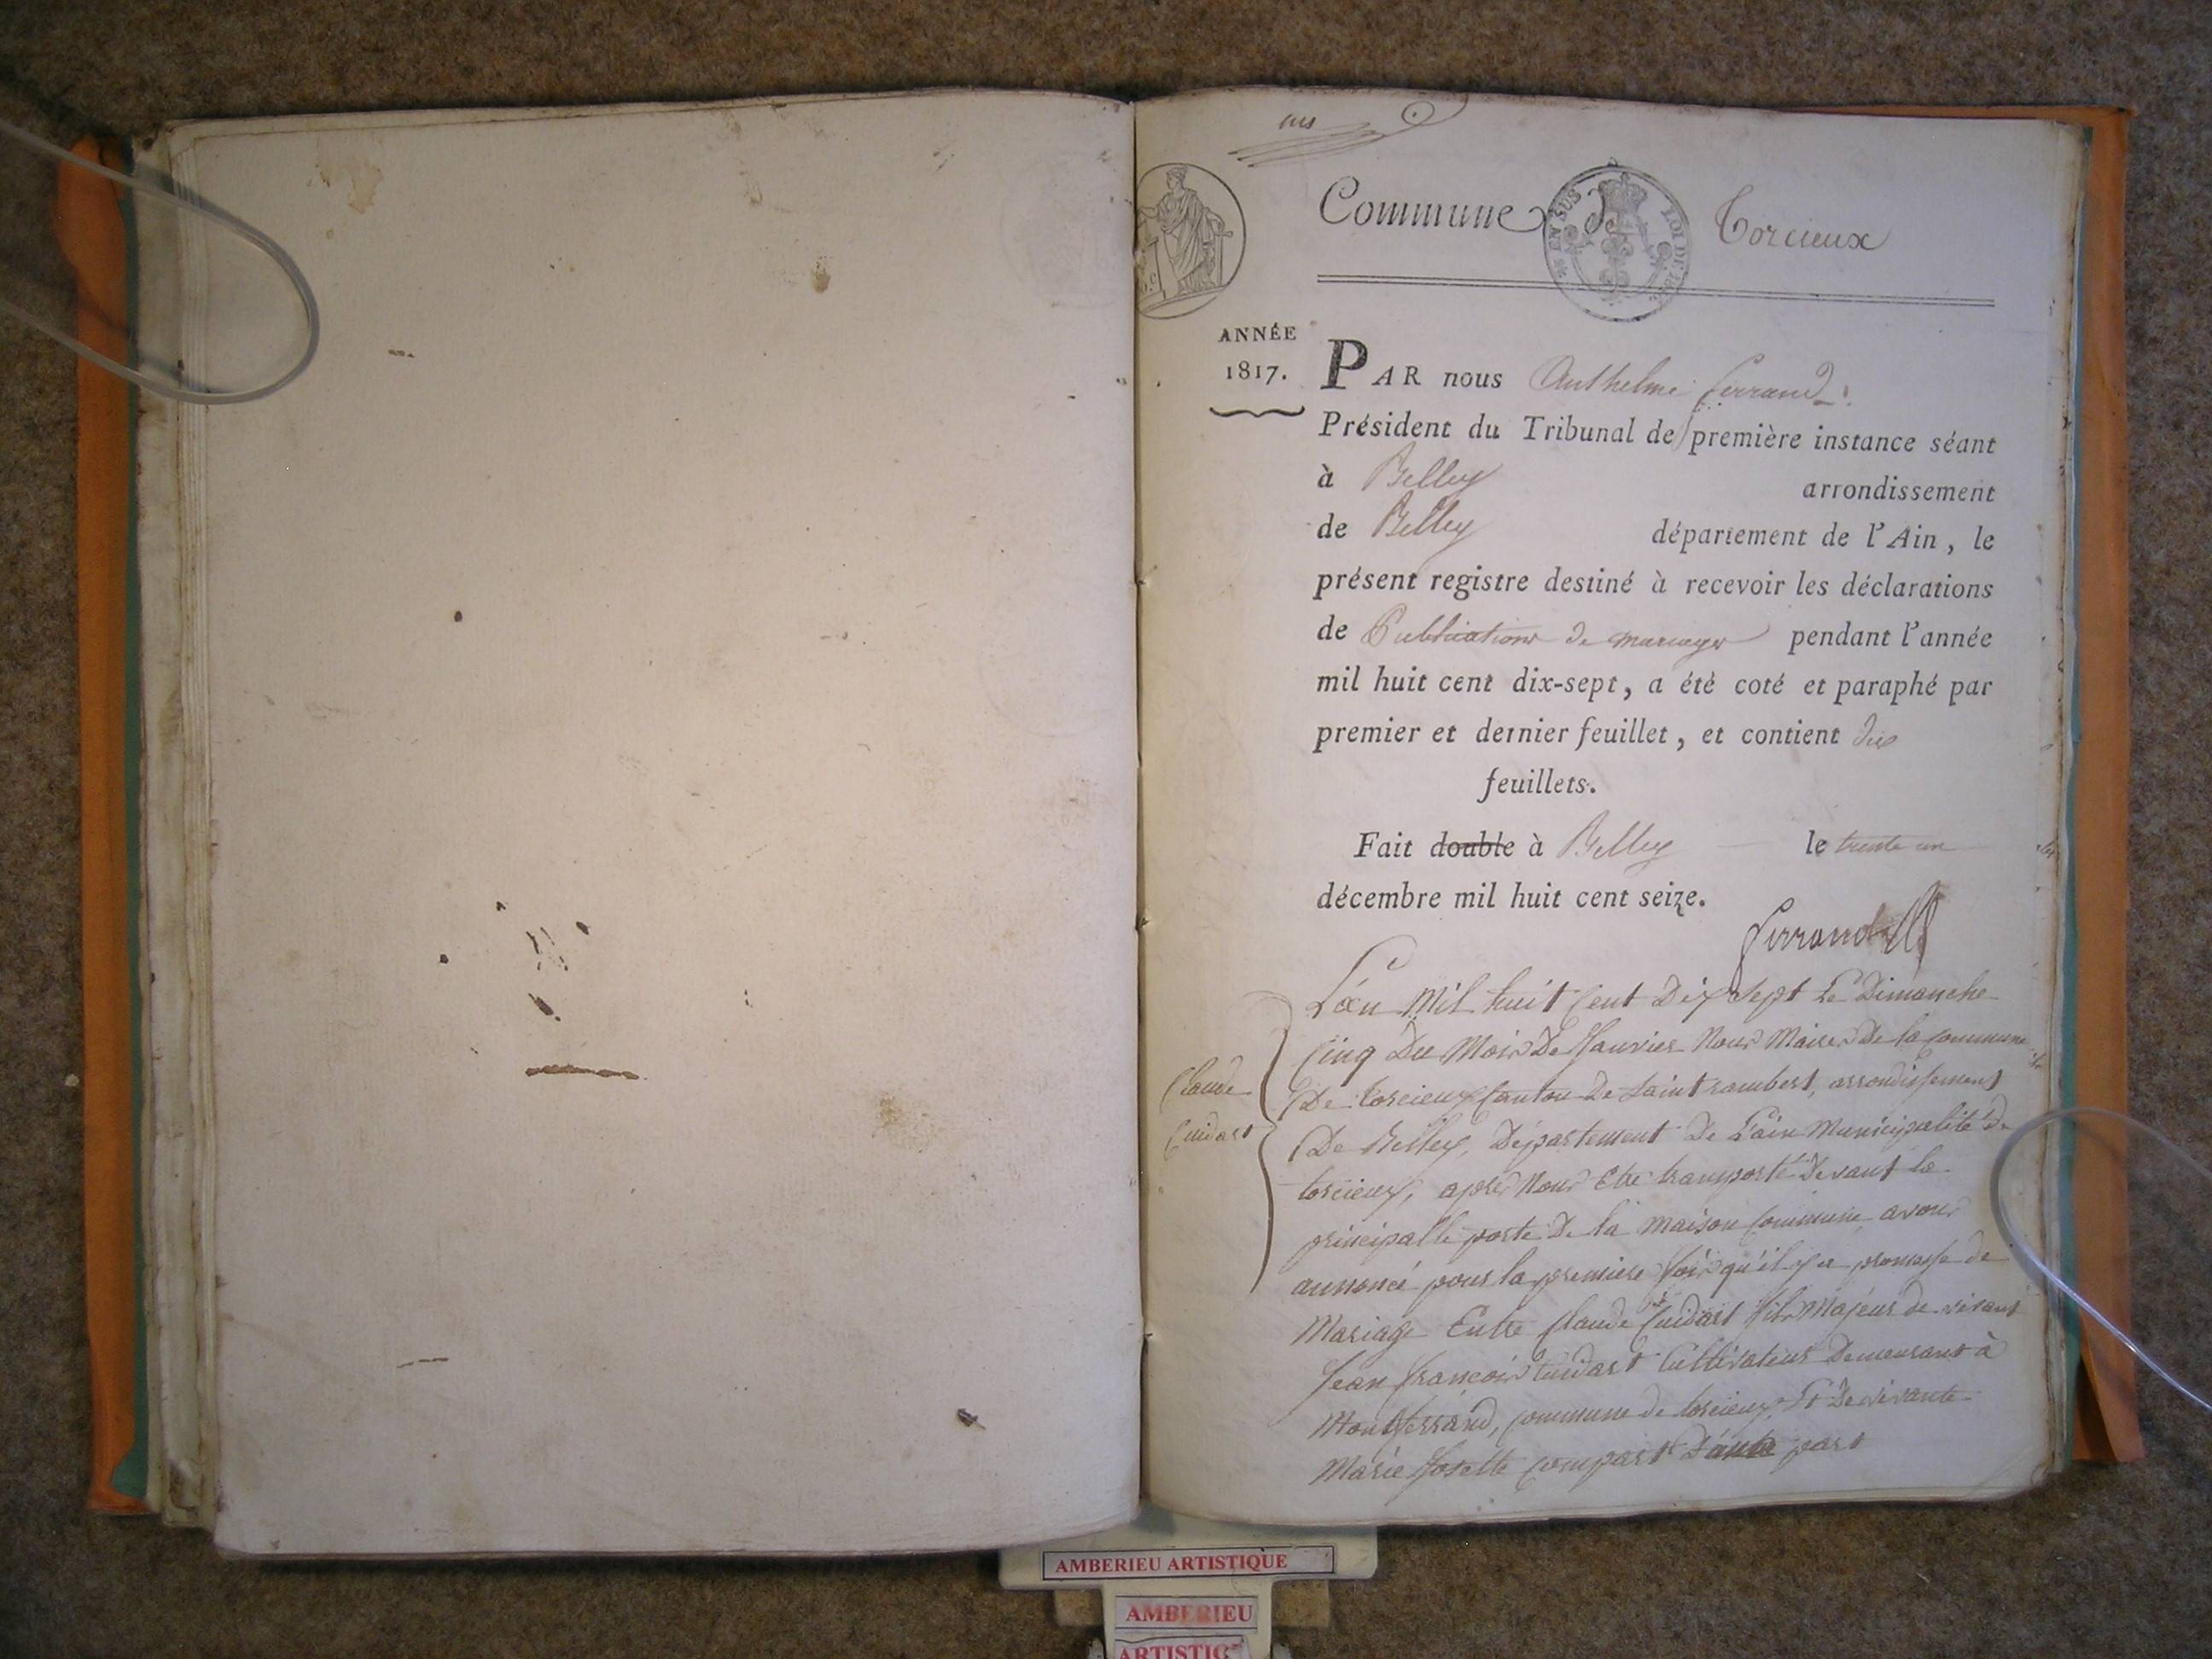 Commune Torcieux
EN SUS
LOI DE
ANNÉE
1817.
PAR nous Anthelme ferrand
Président du Tribunal de première instance séant
à Belley arrondissement
de Belley département de l'Ain, le
présent registre destiné à recevoir les déclarations
de Publications de mariages pendant l'année
mil huit cent dix-sept, a été coté et paraphé par
premier et dernier feuillet, et contient dix
feuillets.
Fait double à Belley le trente un
décembre mil huit cent seize.
ferrand
Claude
Cuidart
L'an Mil huit Cent Dix Sept Le Dimanche
Cinq Du Mois De Janvier Nous Maire De la commune
De torcieux Canton De Saint rambert, arrondissement
De Belley, Département De L'ain Municipalité de
torcieux, après Nous Etre transporté Devant la
principalle porte De la maison Commune avons
annoncé pour la premiere fois qu'il y a promesse de
Mariage Entre Claude Cuidart fils Majeur de vivant
Jean francois Cuidart Cultivateur Demeurant à
Montferrand, Commune de torcieux Et De vivante
Marie Josette Compart D'aute part
AMBERIEU ARTISTIQUE
AMBERIEU
ARTISTIQ